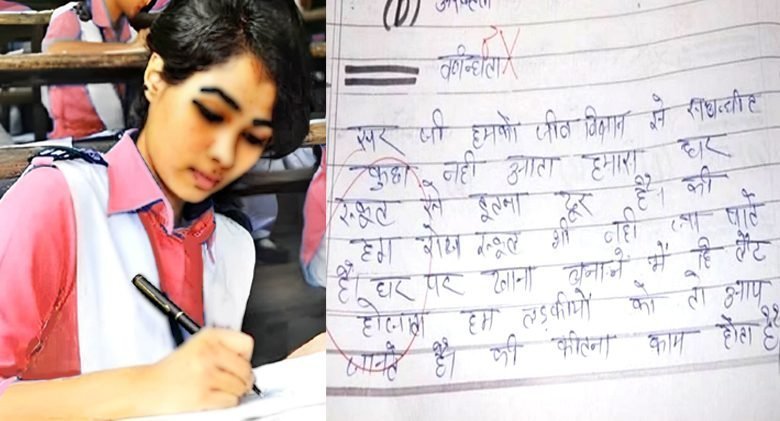 (D)
वर्णन्धता
सर जी हमको जीव विज्ञान से
कुछ नही आता हमारा घर
स्कूल से इतना दूर है। की
हम रोज स्कूल भी नही जा पाते
है। घर पर खाना बनाने में हि लेट
होजाता हम लड़कीयों को तो आप
जानते है। की कीतना काम होता है